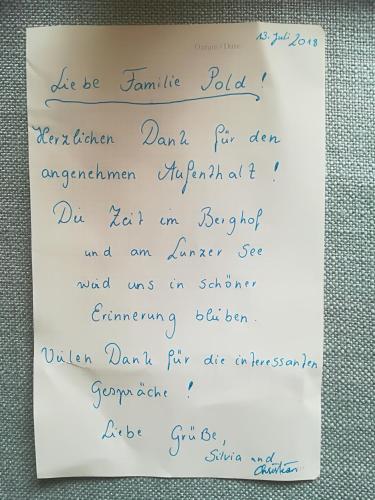 13. Juli 2018
Datum / Date:
Liebe Familie Pold!
Herzlichen Dank für den
angenehmen Aufenthalt!
Die Zeit im Berghof
und am Lunzer See
wird uns in schöner
Erinnerung bleiben.
Vielen Dank für die interessanten
Gespräche!
Liebe Grüße,
Silvia und
Christian